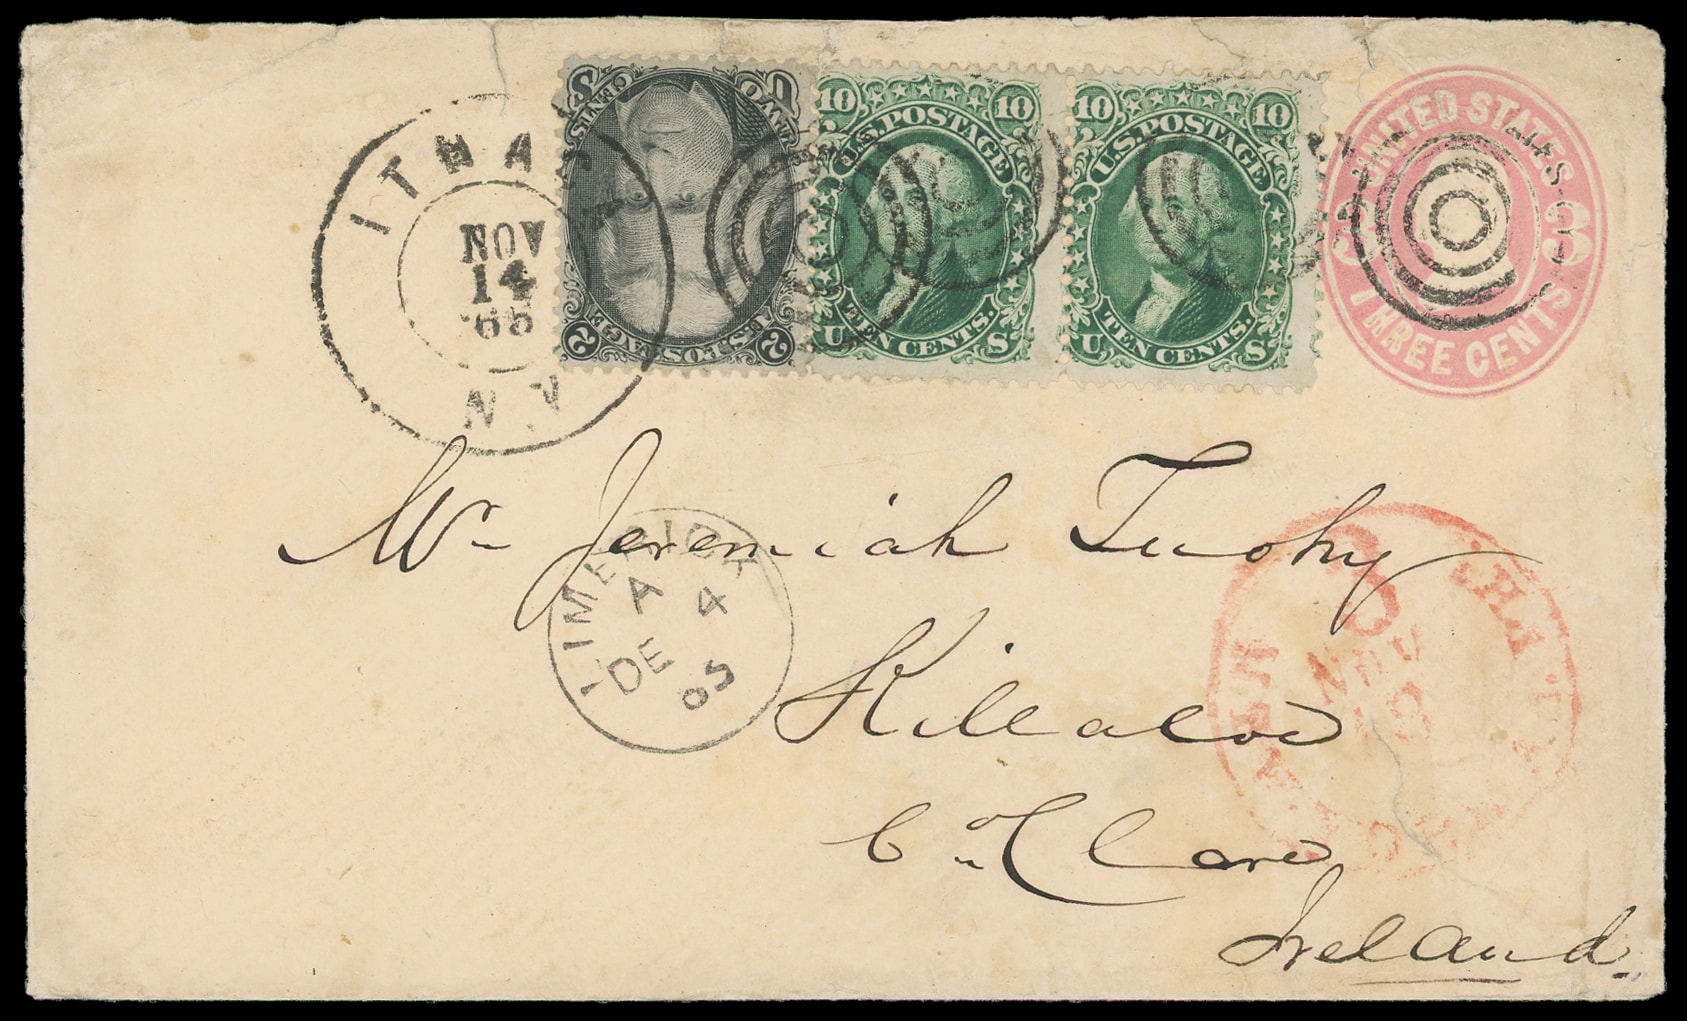 ITHACA
NOV
14
'65
N.Y.
2 TWO CENTS 2
U.S. POSTAGE
10 10
U.S. POSTAGE
TEN CENTS.
U S
10 10
U.S. POSTAGE
TEN CENTS.
U S
UNITED STATES
3 3
THREE CENTS
Mr. Jeremiah Tuohy
Killaloe
Co. Clare
Ireland.
LIMERICK
A 4
DE
65
3
NOV
18